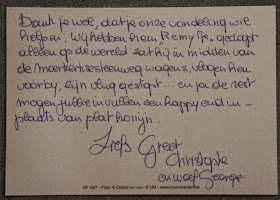 Dank je wel, dat je onze vondeling wil
helpen, wij hebben hem "Remy tje" gedoopt
alleen op de wereld sat hij in midden van
de Moerkerksesteenweg wagens vlogen hem
voorby, zijn vlug gestopt... en ja de rest
mogen jullie invullen een happy end in-
plaats van plat konijn.
Liefs Greet
Christophe
en woef George